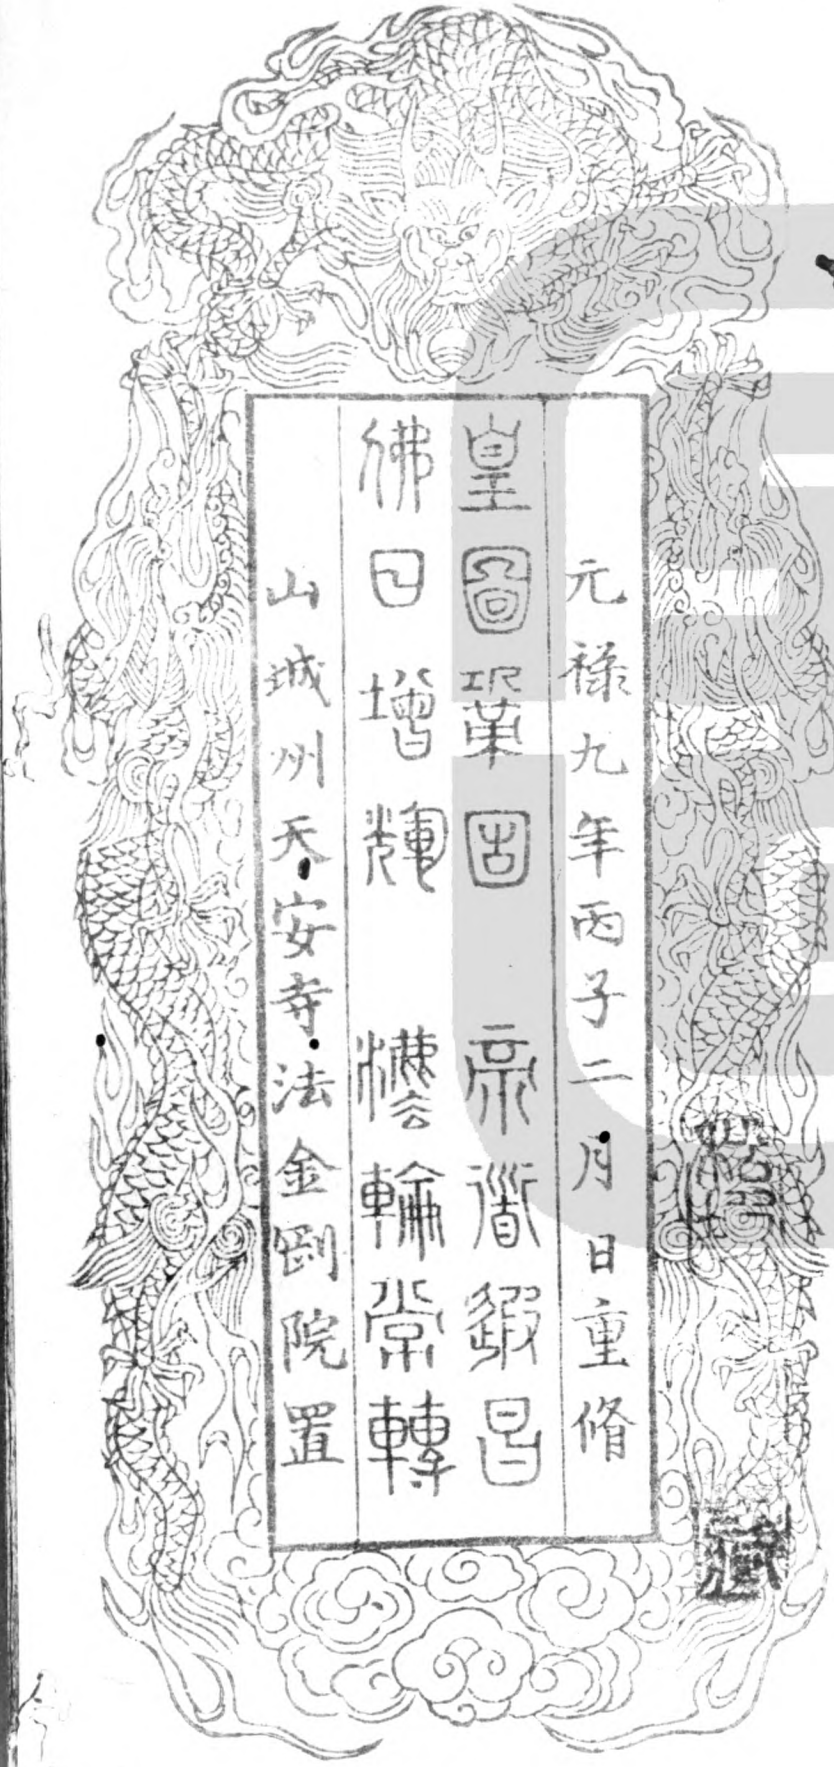 元禄九年丙子二月日重脩
皇圖鞏固　帝道遐昌
佛日增輝　法輪常轉
山城州天安寺法金剛院置
藏